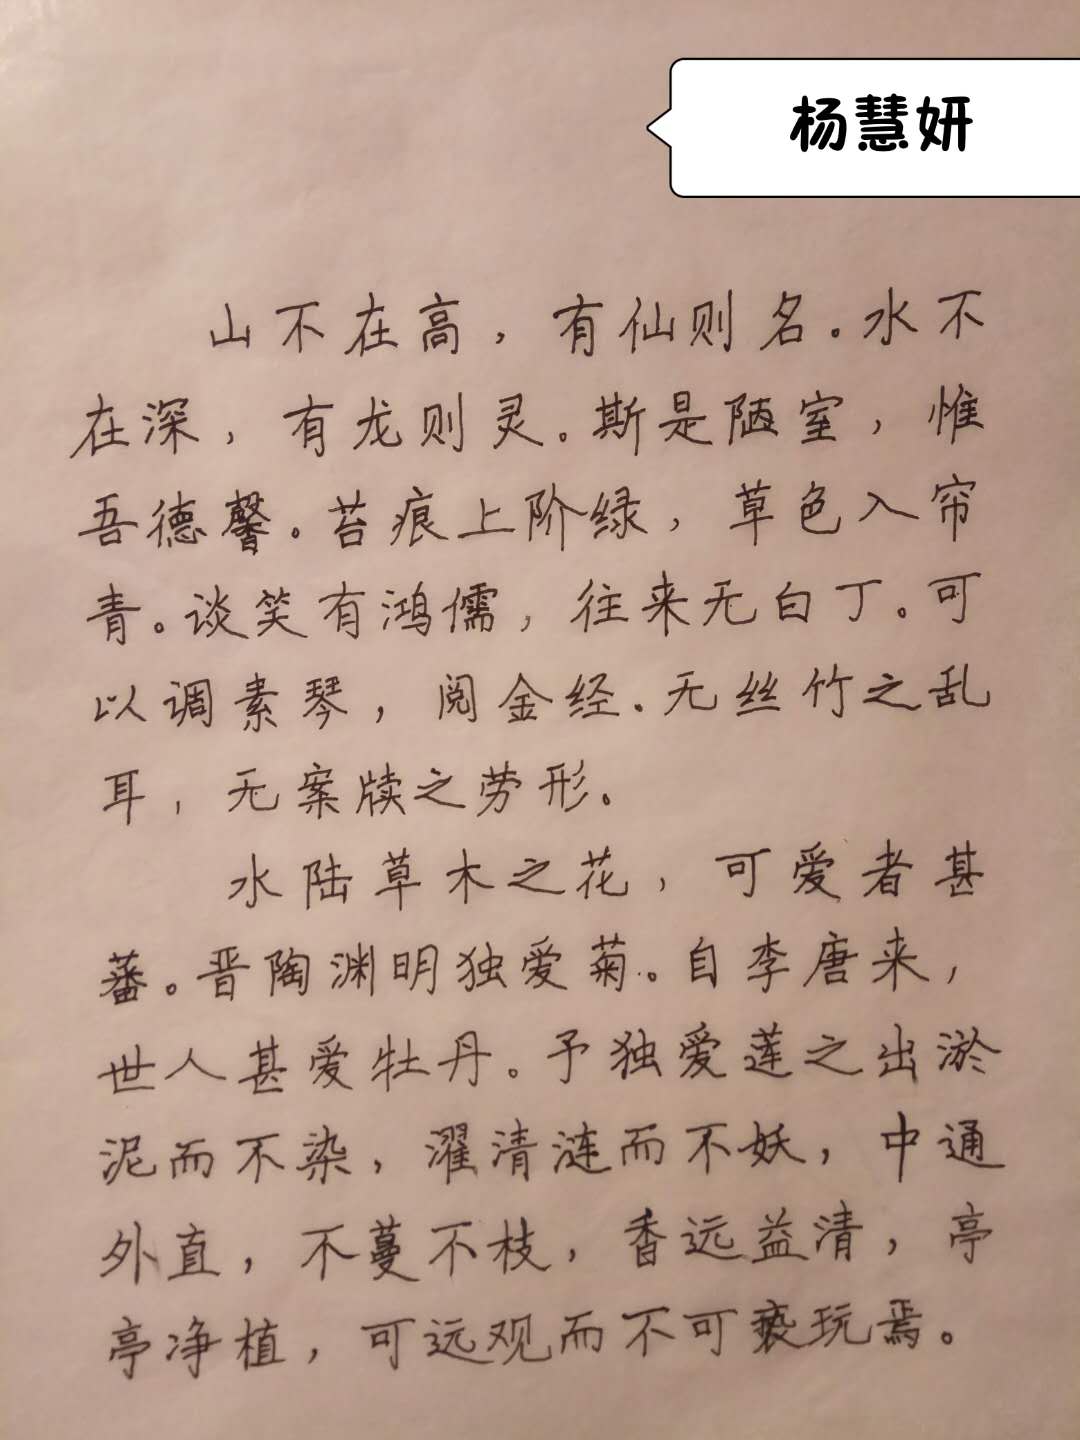 杨慧妍
山不在高，有仙则名。水不
在深，有龙则灵。斯是陋室，惟
吾德馨。苔痕上阶绿，草色入帘
青。谈笑有鸿儒，往来无白丁。可
以调素琴，阅金经。无丝竹之乱
耳，无案牍之劳形。
水陆草木之花，可爱者甚
蕃。晋陶渊明独爱菊。自李唐来，
世人甚爱牡丹。予独爱莲之出淤
泥而不染，濯清涟而不妖，中通
外直，不蔓不枝，香远益清，亭
亭净植，可远观而不可亵玩焉。